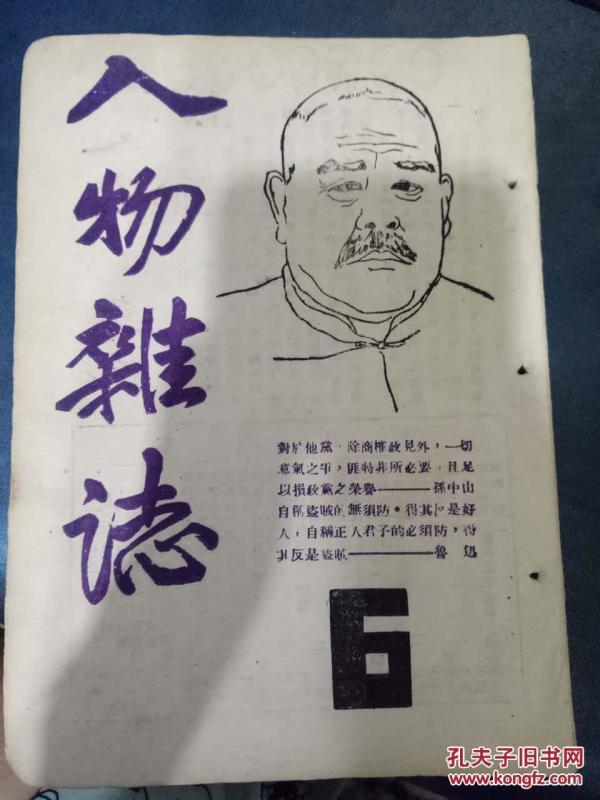 人物雜誌
對於他黨，除商榷政見外，一切
意氣之爭，匪特非所必要，且足
以損政黨之榮譽————孫中山
自稱盜賊的無須防，得其反是好
人，自稱正人君子的必須防，得
其反是盜賊————魯迅
6
孔夫子旧书网
www.kongfz.com